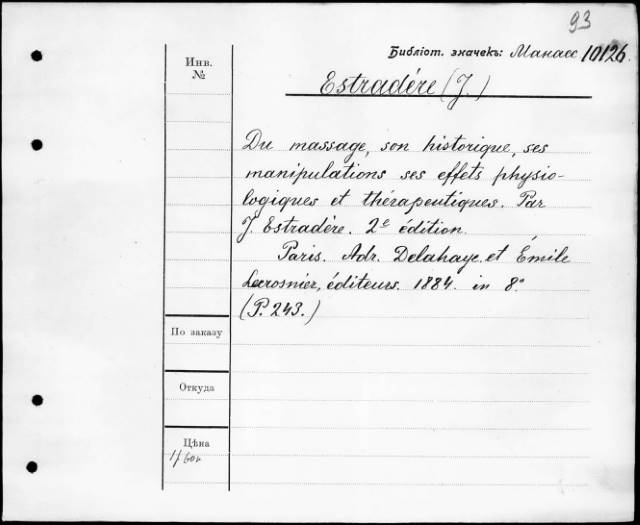 93
Библіот. значекъ: Манасс 10126.
Инв.
№
Estradére (J.)
Du massage, son historique, ses
manipulations ses effets physio-
logiques et thérapeutiques. Par
J. Estradère. 2e édition.
Paris. Adr. Delahaye et Émile
Lecrosnier, éditeurs. 1884. in 8°
(P. 243.)
По заказу
Откуда
Цѣна